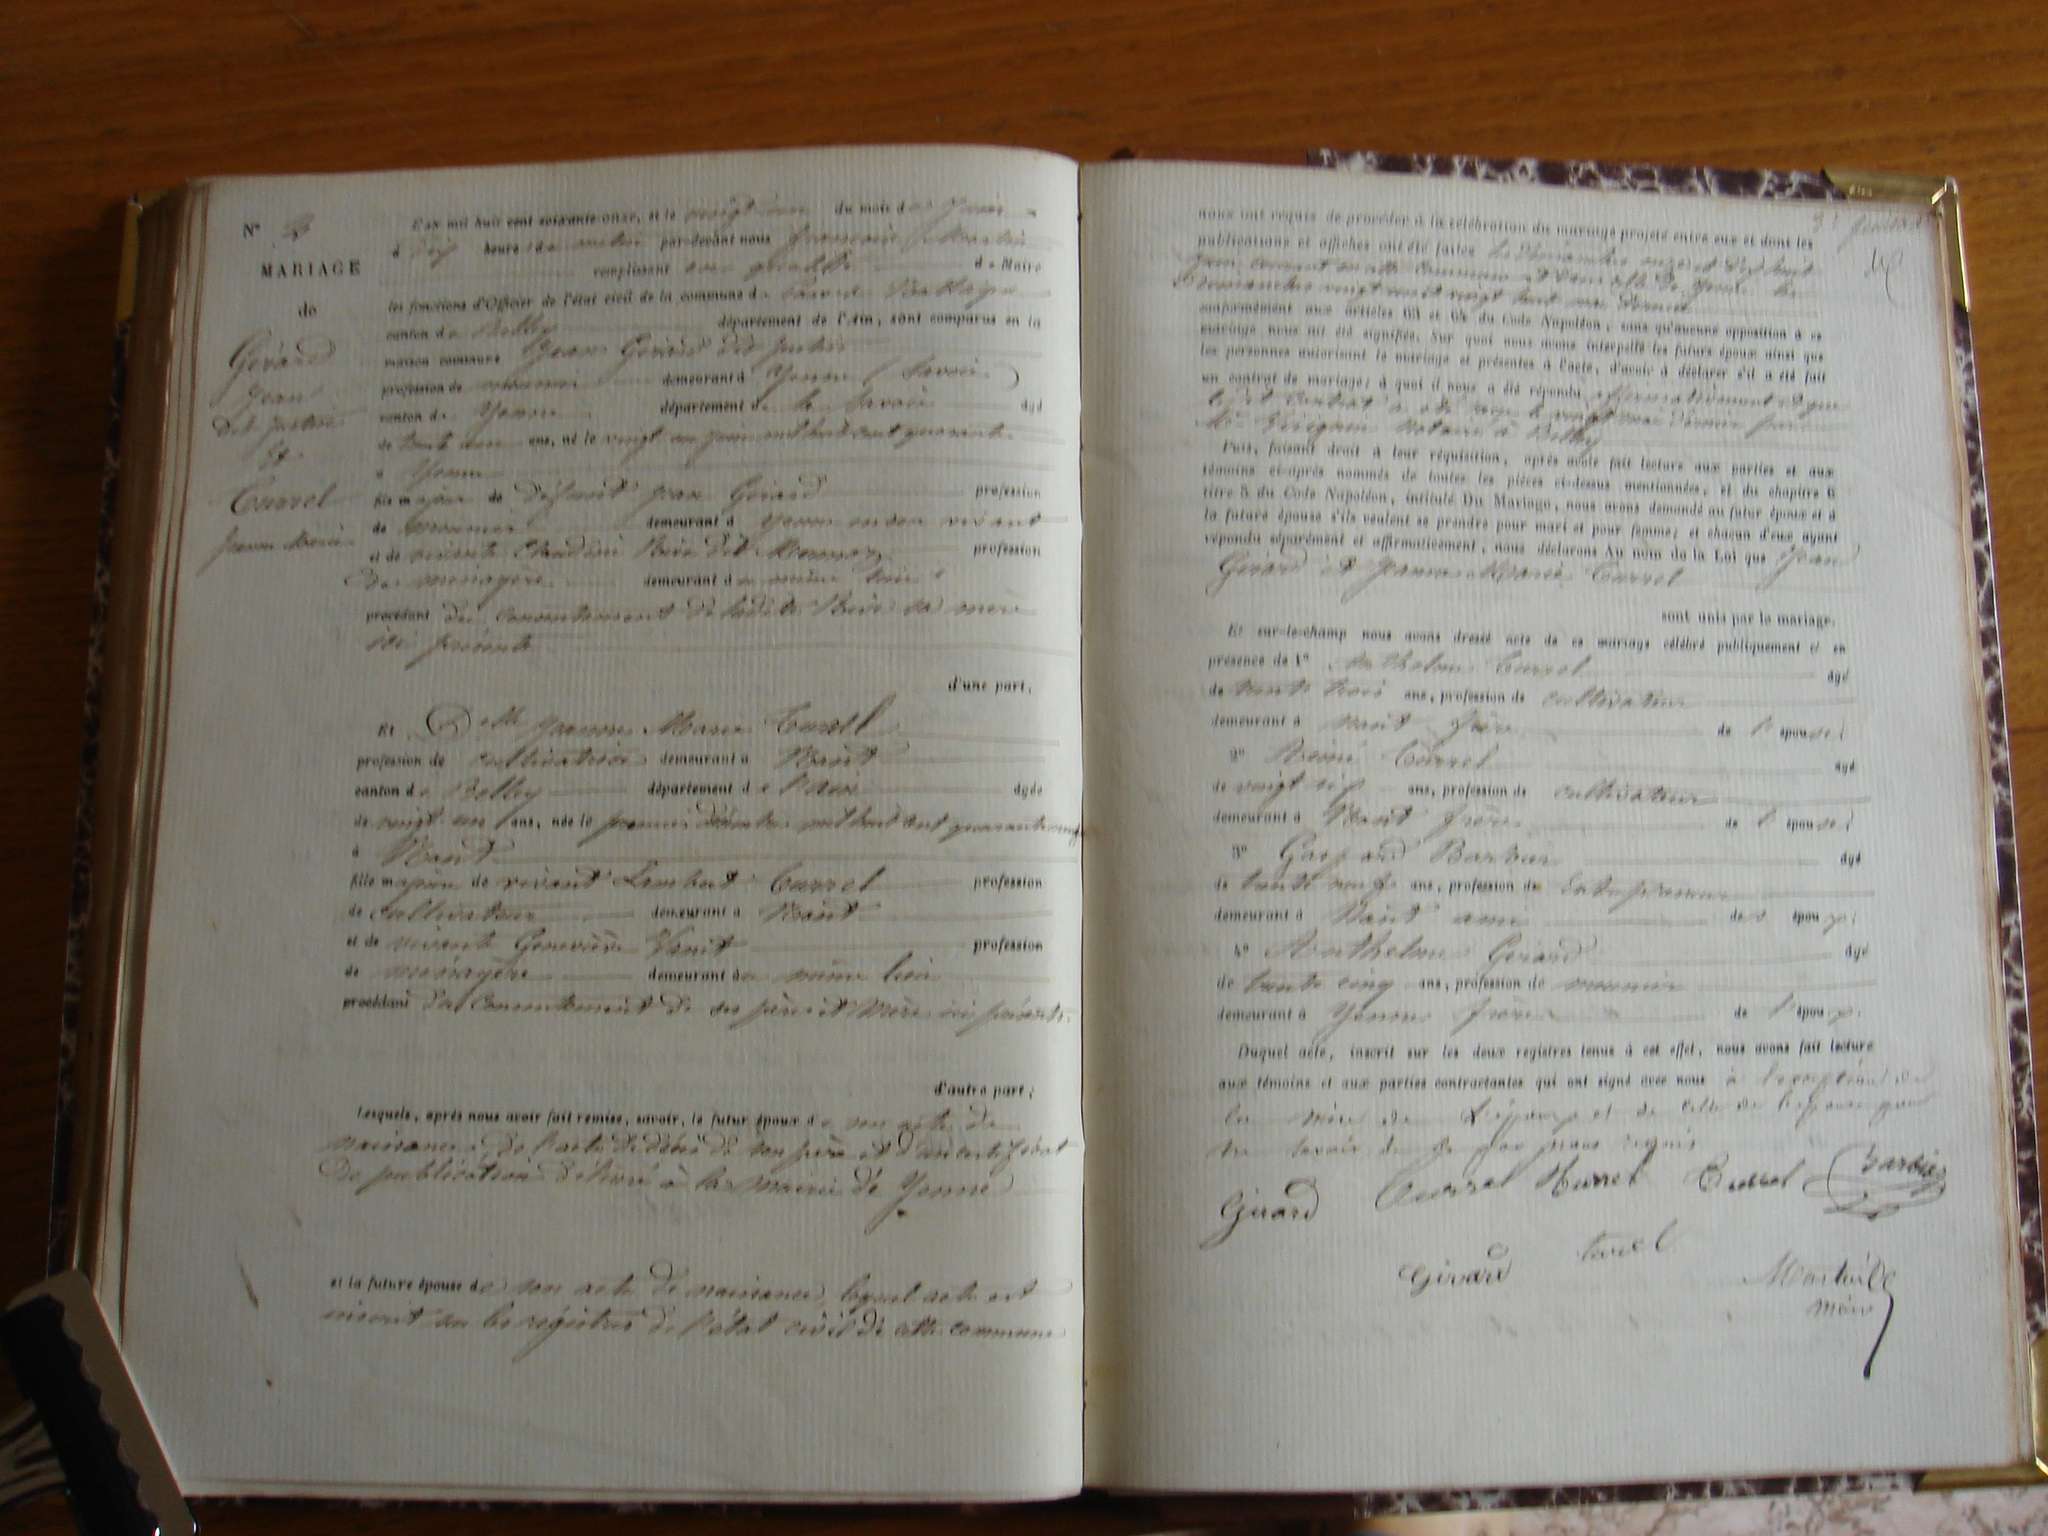 N° 3
MARIAGE
de
Girard
Jean
dit
Et
Currel
Jeanne Marie
L'an mil huit cent soixante-onze, et le vingt un du mois de Juin
à dix heures du matin par-devant nous François Martin
remplissant en qualité de Maire
les fonctions d'Officier de l'état civil de la commune de
canton de Belley département de l'Ain, sont comparus en la
maison commune Jean Girard dit
profession de meunier demeurant à Yenne (Savoie)
canton de Yenne département de la Savoie âgé
de trente un ans, né le vingt un juin mil huit cent quarante
à Yenne
fils majeur de défunt Jean Girard profession
de meunier demeurant à Yenne en son vivant
et de vivante Claudine profession
de ménagère demeurant à même lieu
procédant du consentement de ladite sa mère
ici présente
d'une part;
Et Delle Jeanne Marie Currel
profession de cultivatrice demeurant à Nant
canton de Belley département de l'Ain âgée
de vingt un ans, née le premier décembre mil huit cent quarante neuf
à Nant
fille majeure de vivant Lambert Currel profession
de cultivateur demeurant à Nant
et de vivante Geneviève profession
de ménagère demeurant au même lieu
procédant du consentement de ses père et mère ici présents
d'autre part;
Lesquels, après nous avoir fait remise, savoir, le futur époux de son acte de
naissance, de l'acte de décès de son père et d'un certificat
de publication délivré à la mairie de Yenne
et la future épouse de son acte de naissance, lequel acte est
inscrit sur les registres de l'état civil de cette commune
nous ont requis de procéder à la célébration du mariage projeté entre eux et dont les
publications et affiches ont été faites les dimanches onze et dix huit
juin courant en cette commune et dans celle de Yenne les
dimanches vingt un et vingt huit mai dernier
conformément aux articles 63 et 64 du Code Napoléon, sans qu'aucune opposition à ce
mariage nous ait été signifiée. Sur quoi nous avons interpellé les futurs époux ainsi que
les personnes autorisant le mariage et présentes à l'acte, d'avoir à déclarer s'il a été fait
un contrat de mariage; à quoi il nous a été répondu affirmativement et que
le dit contrat a été reçu le vingt mai dernier par
Me notaire à Belley
Puis, faisant droit à leur réquisition, après avoir fait lecture aux parties et aux
témoins ci-après nommés de toutes les pièces ci-dessus mentionnées, et du chapitre 6
titre 5 du Code Napoléon, intitulé Du Mariage, nous avons demandé au futur époux et à
la future épouse s'ils veulent se prendre pour mari et pour femme; et chacun d'eux ayant
répondu séparément et affirmativement, nous déclarons Au nom de la Loi que Jean
Girard et Jeanne Marie Currel
sont unis par le mariage.
Et sur-le-champ nous avons dressé acte de ce mariage célébré publiquement et en
présence de 1° Anthelme Currel âgé
de trente trois ans, profession de cultivateur
demeurant à Nant frère de l'épouse;
2° Currel âgé
de vingt six ans, profession de cultivateur
demeurant à Nant frère de l'épouse;
3° Gaspard Barbier âgé
de trente neuf ans, profession de Entrepreneur
demeurant à Nant ami des époux;
4° Anthelme Girard âgé
de trente cinq ans, profession de meunier
demeurant à Yenne frère de l'époux.
Duquel acte, inscrit sur les deux registres tenus à cet effet, nous avons fait lecture
aux témoins et aux parties contractantes qui ont signé avec nous à l'exception de
la mère de l'époux et de celle de l'épouse pour
ne savoir de ce par nous requis
Girard Currel Currel Currel Barbier
Girard
Martin
Maire